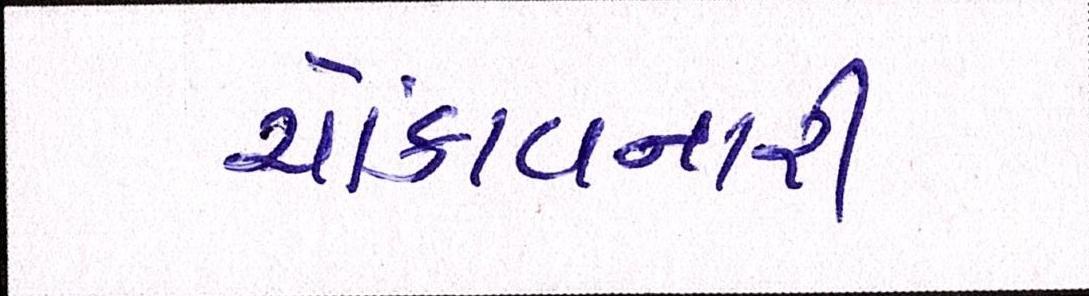 ચોંકાવનારી